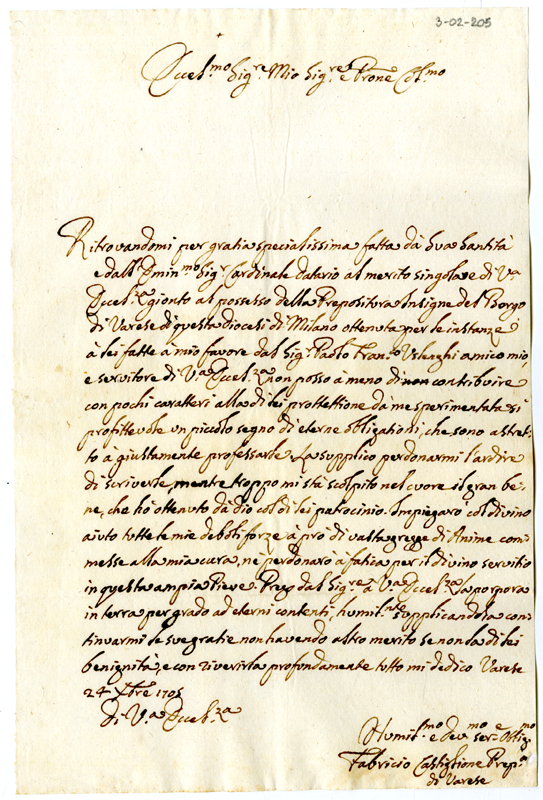 3-02-205
Eccel.mo Sig.re Mio Sig.re e Prone Col.mo
Ritrovandomi per gratia specialissima fatta da Sua Santità
e dall' Emin.mo Sig.r Cardinale Datario al merito singolare di V.a
Eccel.za gionto al possesso della Prepositura Insigne del Borgo
di Varese di questa diocesi di Milano ottenuta per le instanze
à lei fatte à mio favore dal Sig.r Paolo Fran.co amico mio,
e servitore di V.a Eccel.za non posso à meno di non contribuire
con pochi caratteri alla di lei prottettione da me sperimentata si
profittevole un piccolo segno di eterne obligationi, che sono astret-
to a giustamente professarle. La supplico perdonarmi l'ardire
di scriverle, mentre troppo mi stà scolpito nel cuore il gran be-
ne, che hò ottenuto da dio col di lei patrocinio. Impiegarò col divino
aiuto tutte le mie deboli forze à prò di vasta gregge di Anime com-
messe alla mia cura, nè perdonarò à fatica per il divino servitio
in questa ampia Pieve. Prego dal Sig.re à V.a Eccel.za la porpora
in terra per grado ad eterni contenti, humil.nte supplicandola con-
tinuarmi le sue gratie non havendo altro merito se non la di lei
benignità, e con riverirla profondamente tutto mi dedico Varese
24 Xbre 1705
di V.a Eccel.za
Humil.mo e dev.mo ser.re Oblig.mo
Fabricio Castiglione Prep.o
di Varese